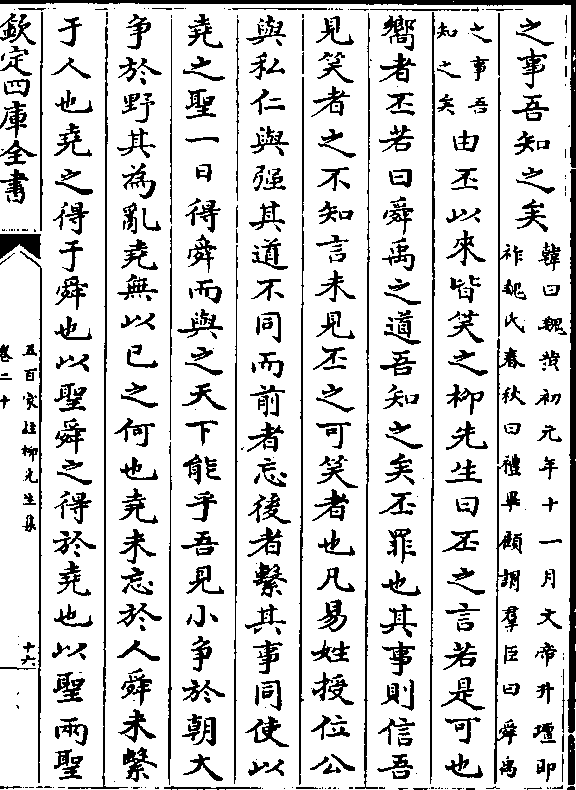 之事吾知之矣韓曰魏黄初元年十一月文帝升壇即祚魏氏春秋曰禮畢顧謂羣臣曰舜禹
之事吾知之矣由丕以來皆笑之柳先生曰丕之言若是可也
嚮者丕若曰舜禹之道吾知之矣丕罪也其事則信吾
見笑者之不知言未見丕之可笑者也凡易姓授位公
與私仁與强其道不同而前者忘後者繫其事同使以
堯之聖一日得舜而與之天下能乎吾見小争於朝大
争於野其為亂堯無以已之何也堯未忘於人舜未繫
于人也堯之得于舜也以聖舜之得於堯也以聖兩聖
欽定四庫全書
五百家注柳先生集
卷二十
十六